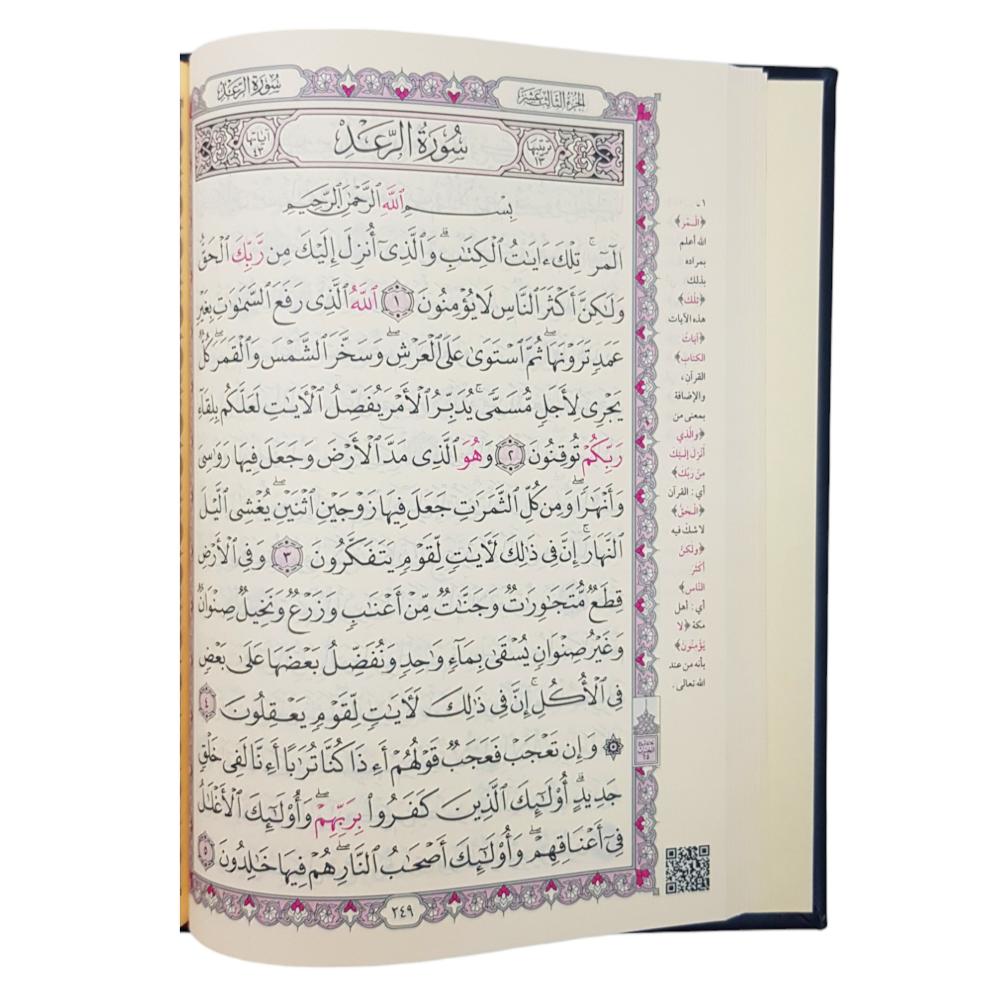 الجزء الثالث عشر
سُورَةُ الرَّعْدِ
ترتيبها ١٣
سُورَةُ الرَّعْدِ
آياتها ٤٣
بِسْمِ ٱللَّهِ ٱلرَّحْمَٰنِ ٱلرَّحِيمِ
الٓمٓرۚ تِلْكَ ءَايَٰتُ ٱلْكِتَٰبِۗ وَٱلَّذِىٓ أُنزِلَ إِلَيْكَ مِن رَّبِّكَ ٱلْحَقُّ
وَلَٰكِنَّ أَكْثَرَ ٱلنَّاسِ لَا يُؤْمِنُونَ ١ ٱللَّهُ ٱلَّذِى رَفَعَ ٱلسَّمَٰوَٰتِ بِغَيْرِ
عَمَدٍ تَرَوْنَهَاۖ ثُمَّ ٱسْتَوَىٰ عَلَى ٱلْعَرْشِۖ وَسَخَّرَ ٱلشَّمْسَ وَٱلْقَمَرَۖ كُلٌّ
يَجْرِى لِأَجَلٍ مُّسَمًّىۚ يُدَبِّرُ ٱلْأَمْرَ يُفَصِّلُ ٱلْءَايَٰتِ لَعَلَّكُم بِلِقَآءِ
رَبِّكُمْ تُوقِنُونَ ٢ وَهُوَ ٱلَّذِى مَدَّ ٱلْأَرْضَ وَجَعَلَ فِيهَا رَوَٰسِىَ
وَأَنْهَٰرًاۖ وَمِن كُلِّ ٱلثَّمَرَٰتِ جَعَلَ فِيهَا زَوْجَيْنِ ٱثْنَيْنِۖ يُغْشِى ٱلَّيْلَ
ٱلنَّهَارَۚ إِنَّ فِى ذَٰلِكَ لَءَايَٰتٍ لِّقَوْمٍ يَتَفَكَّرُونَ ٣ وَفِى ٱلْأَرْضِ
قِطَعٌ مُّتَجَٰوِرَٰتٌ وَجَنَّٰتٌ مِّنْ أَعْنَٰبٍ وَزَرْعٌ وَنَخِيلٌ صِنْوَانٌ
وَغَيْرُ صِنْوَانٍ يُسْقَىٰ بِمَآءٍ وَٰحِدٍ وَنُفَضِّلُ بَعْضَهَا عَلَىٰ بَعْضٍ
فِى ٱلْأُكُلِۚ إِنَّ فِى ذَٰلِكَ لَءَايَٰتٍ لِّقَوْمٍ يَعْقِلُونَ ٤
۞ وَإِن تَعْجَبْ فَعَجَبٌ قَوْلُهُمْ أَءِذَا كُنَّا تُرَٰبًا أَءِنَّا لَفِى خَلْقٍ
جَدِيدٍۗ أُو۟لَٰٓئِكَ ٱلَّذِينَ كَفَرُوا۟ بِرَبِّهِمْۖ وَأُو۟لَٰٓئِكَ ٱلْأَغْلَٰلُ
فِىٓ أَعْنَاقِهِمْۖ وَأُو۟لَٰٓئِكَ أَصْحَٰبُ ٱلنَّارِۖ هُمْ فِيهَا خَٰلِدُونَ ٥
٢٤٩
١ـ
﴿الٓمٓر﴾
الله أعلم
بمراده
بذلك
﴿تلك﴾
هذه الآيات
﴿آيات
الكتاب﴾
القرآن،
والإضافة
بمعنى من
﴿والذي
أنزل إليك
من ربك﴾
أي: القرآن
﴿الحق﴾
لا شك فيه
﴿ولكن
أكثر
الناس﴾
أي: أهل
مكة ﴿لا
يؤمنون﴾
بأنه من عند
الله تعالى.